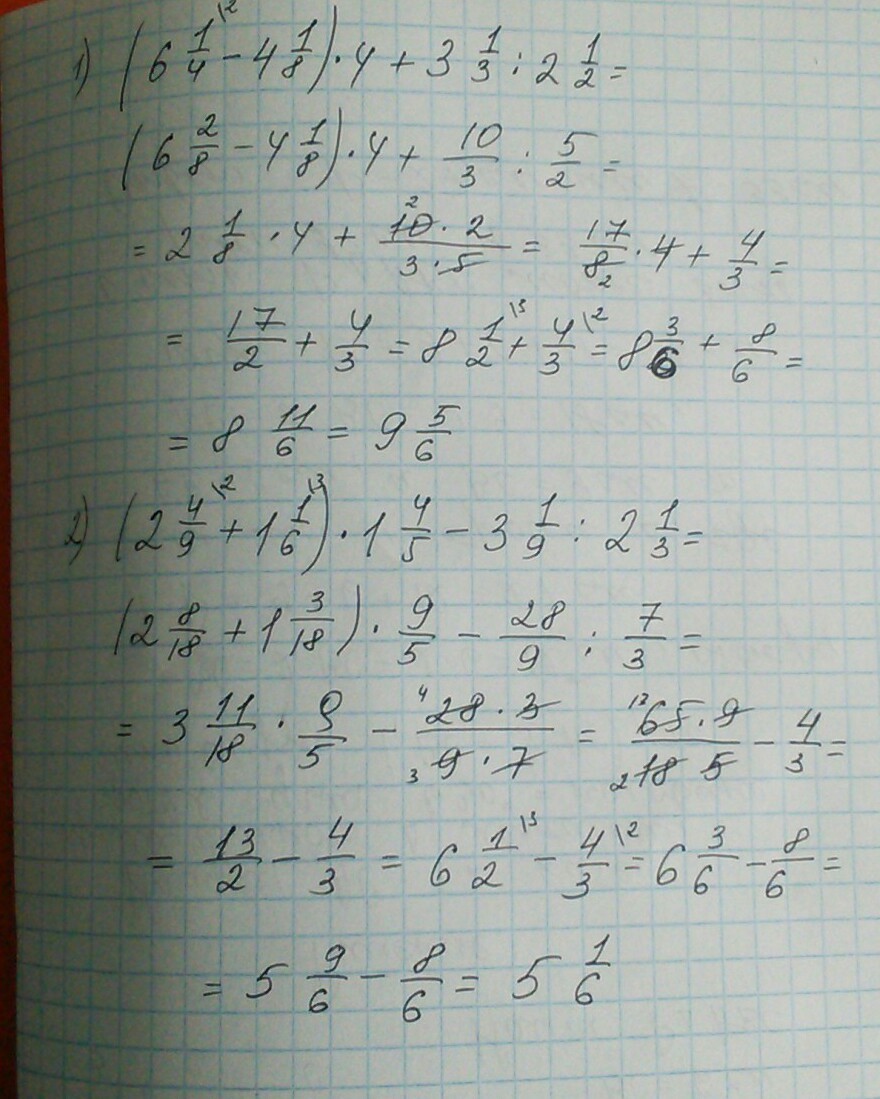 1) (6 1/4 \2 - 4 1/8) · 4 + 3 1/3 : 2 1/2 =
(6 2/8 - 4 1/8) · 4 + 10/3 : 5/2 =
= 2 1/8 · 4 + 2 10 · 2 / 3 · 5 = 17/8 2 · 4 + 4/3 =
= 17/2 + 4/3 = 8 1/2 \3 + 4/3 \2 = 8 3/6 + 8/6 =
= 8 11/6 = 9 5/6
2) (2 4/9 \2 + 1 1/6 \3) · 1 4/5 - 3 1/9 : 2 1/3 =
(2 8/18 + 1 3/18) · 9/5 - 28/9 : 7/3 =
= 3 11/18 · 9/5 - 4 28 · 3 / 3 9 · 7 = 13 65 · 9 / 2 18 5 - 4/3 =
= 13/2 - 4/3 = 6 1/2 \3 - 4/3 \2 = 6 3/6 - 8/6 =
= 5 9/6 - 8/6 = 5 1/6